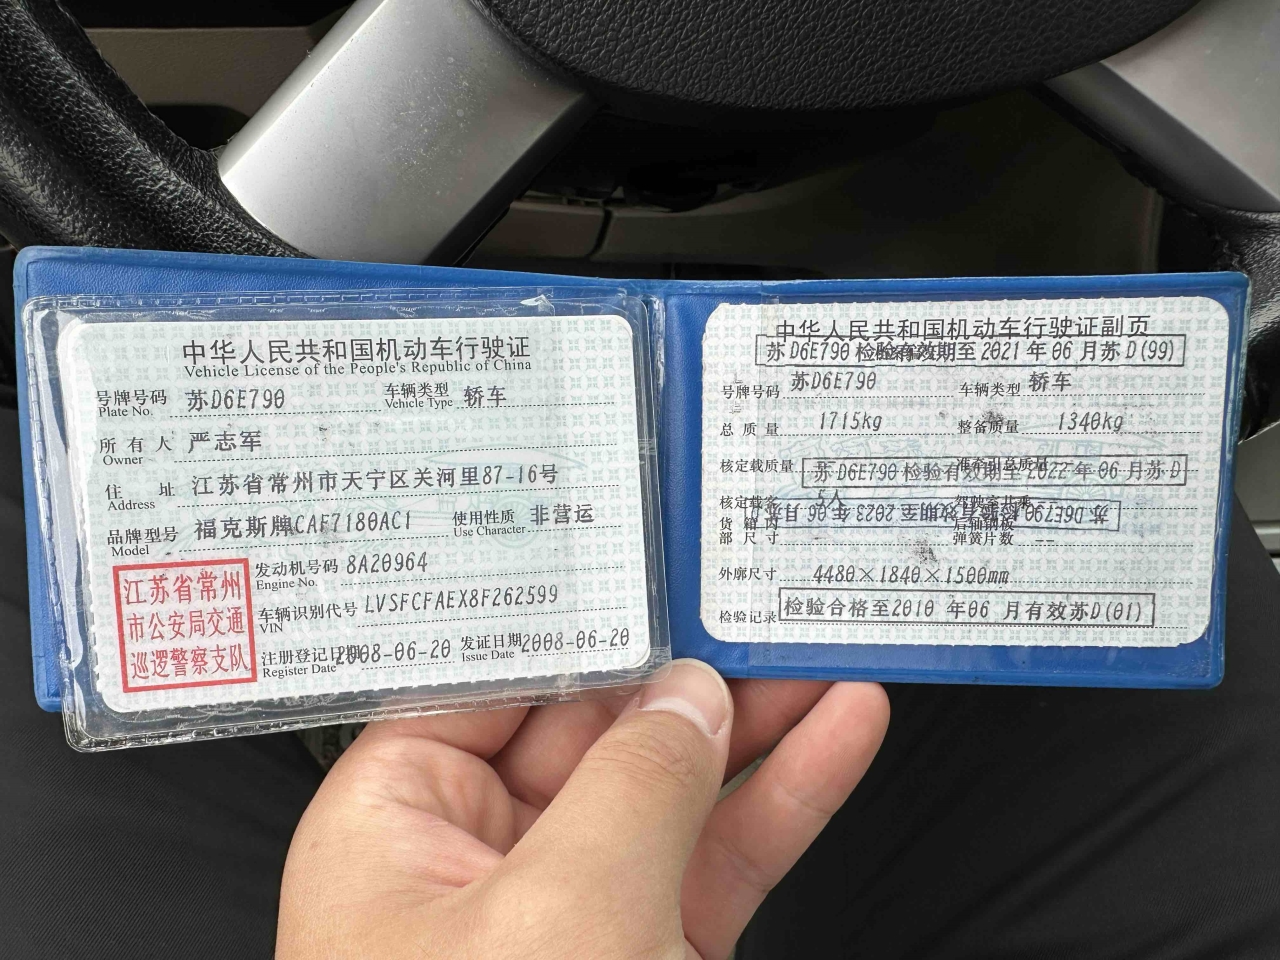 中华人民共和国机动车行驶证
Vehicle License of the People's Republic of China
号牌号码 Plate No. 苏D6E790 车辆类型 Vehicle Type 轿车
所有人 Owner 严志军
住址 Address 江苏省常州市天宁区关河里87-16号
品牌型号 Model 福克斯牌CAF7180AC1 使用性质 Use Character 非营运
发动机号码 Engine No. 8A20964
车辆识别代号 VIN LVSFCFAEX8F262599
注册登记日期 Register Date 2008-06-20 发证日期 Issue Date 2008-06-20
江苏省常州
市公安局交通
巡逻警察支队
中华人民共和国机动车行驶证副页
苏D6E790 检验有效期至 2021 年 06 月苏D(99)
号牌号码 苏D6E790 车辆类型 轿车
总质量 1715kg 整备质量 1340kg
核定载质量 准牵引总质量
苏D6E790 检验有效期至 2022 年 06 月苏D
核定载客 5人 驾驶室共乘 --
苏D6E790 检验有效期至 2023 年 06 月苏D
货箱内部尺寸 后轴钢板弹簧片数 --
外廓尺寸 4480×1840×1500mm
检验记录 检验合格至2010 年06 月有效苏D(01)